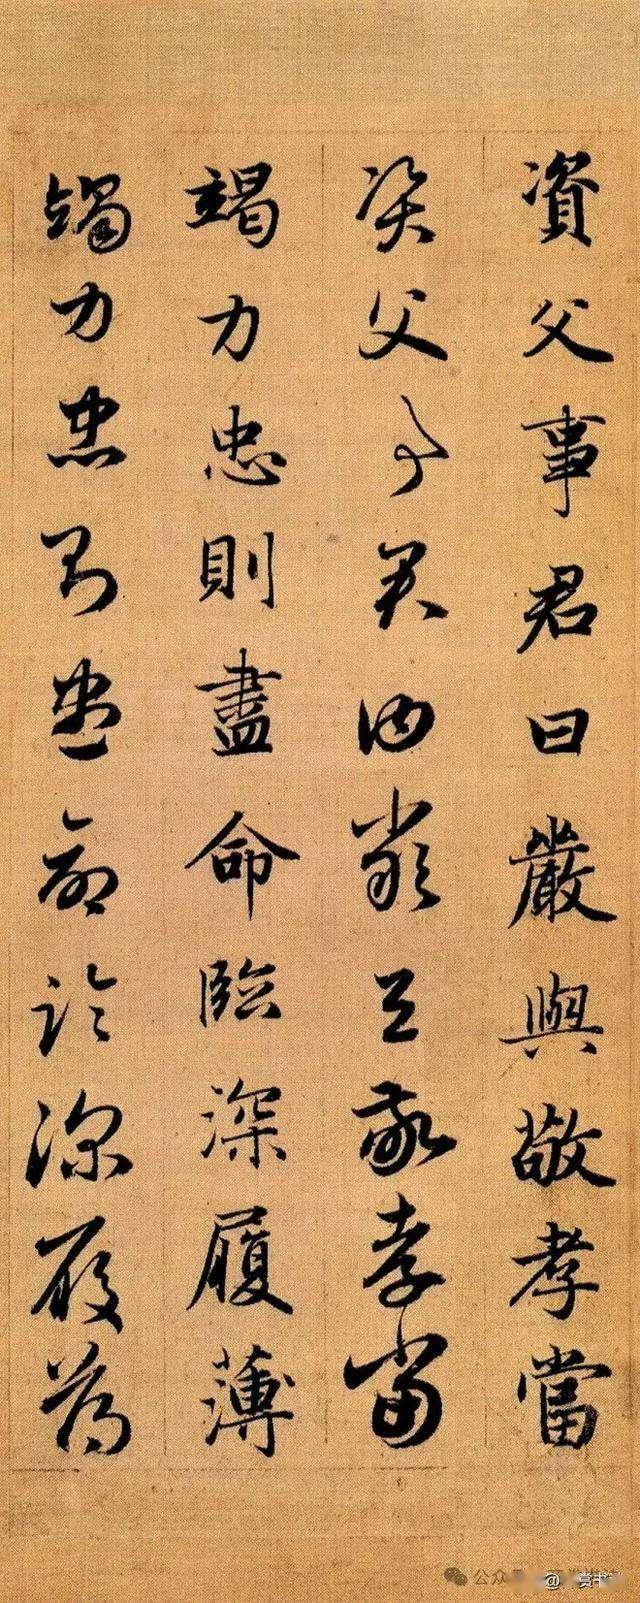 資父事君曰嚴與敬孝當
資父事君曰嚴與敬孝當
竭力忠則盡命臨深履薄
竭力忠則盡命臨深履薄
公众
@ 赏书